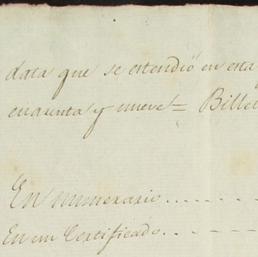 data que se estendió en esta
cuarenta y nueve = Billet
En numerario . . . . . . .
En un Certificado . . - - -